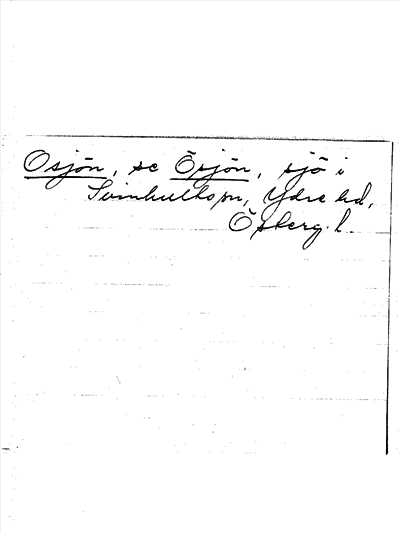 Osjön, se Ösjön, sjö i
Svinhults sn, Ydre hd,
Östergl.